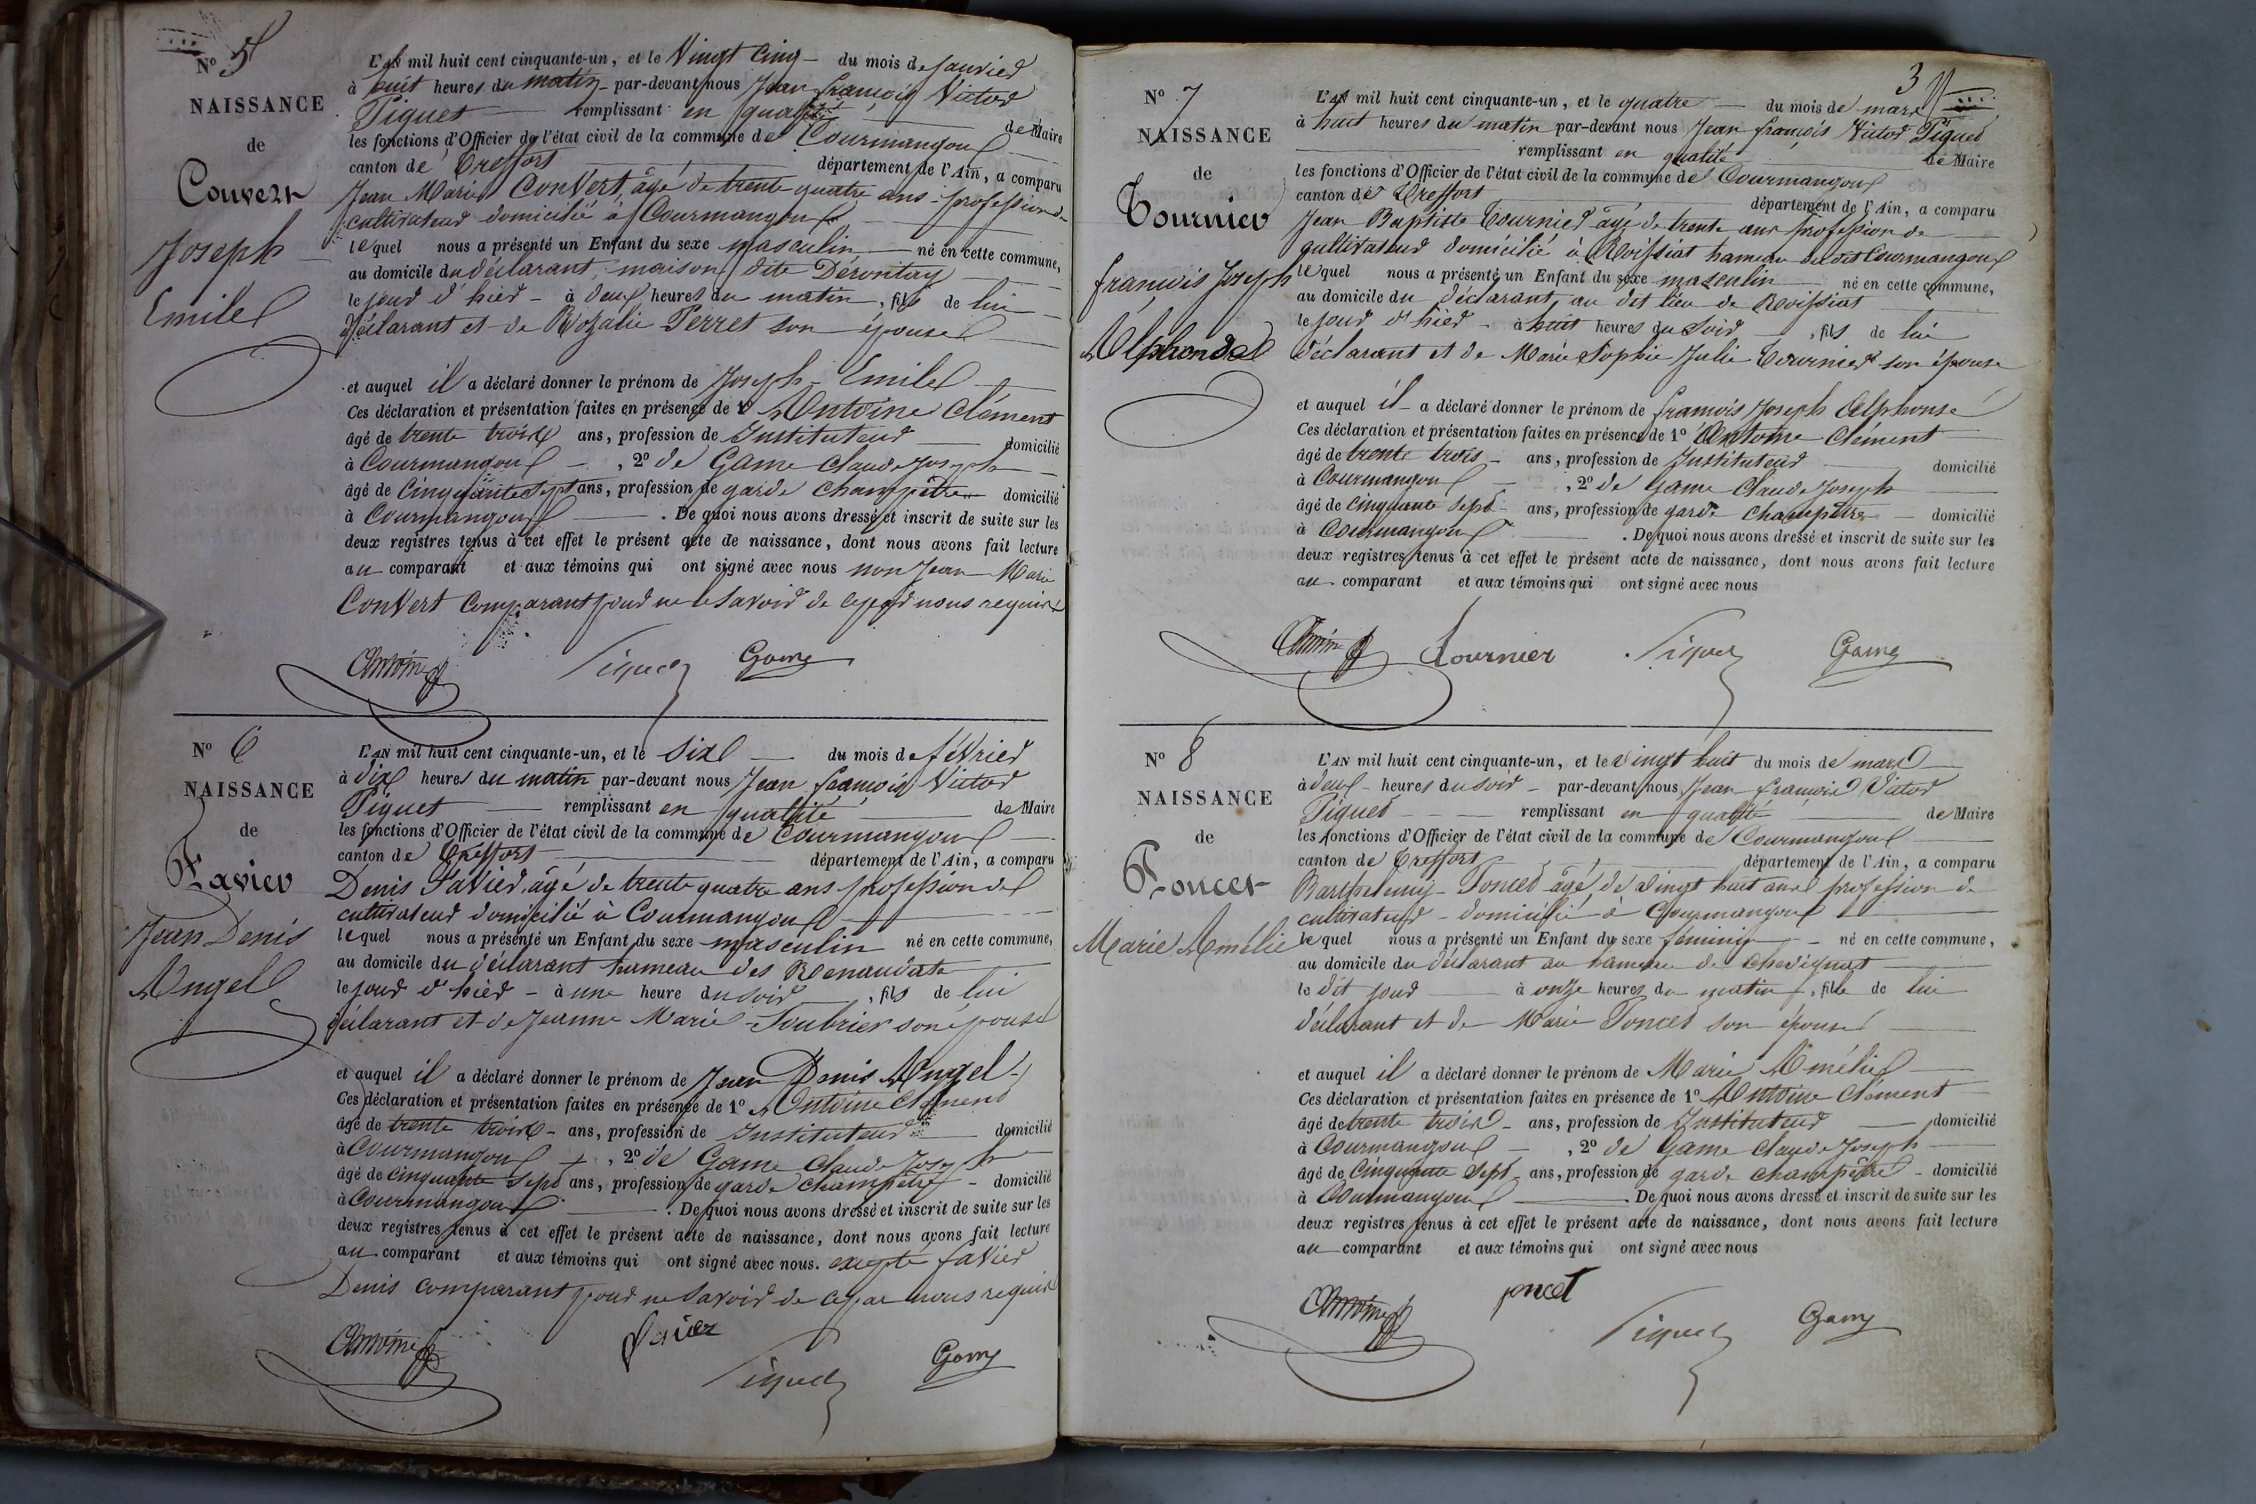 Nº 5
NAISSANCE
de
Convert
Joseph
Emile
L'AN mil huit cent cinquante-un, et le Vingt Cinq du mois de Janvier
à huit heures du matin par-devant nous Jean françois Victor
Piquet remplissant en qualité de Maire
les fonctions d'Officier de l'état civil de la commune de Courmangoux
canton de Treffort département de l'Ain, a comparu
Jean Marie Convert, âgé de trente quatre ans profession de
cultivateur domicilié à Courmangoux
lequel nous a présenté un Enfant du sexe masculin né en cette commune,
au domicile du déclarant, maison dite Dérontay
le jour d'hier à deux heures du matin, fils de lui
déclarant et de Rozalie Perret son épouse
et auquel il a déclaré donner le prénom de Joseph Emile
Ces déclaration et présentation faites en présence de 1º Antoine Clément
âgé de trente trois ans, profession de Instituteur domicilié
à Courmangoux, 2º de Game Claude Joseph
âgé de Cinquante Sept ans, profession de garde champêtre domicilié
à Courmangoux. De quoi nous avons dressé et inscrit de suite sur les
deux registres tenus à cet effet le présent acte de naissance, dont nous avons fait lecture
au comparant et aux témoins qui ont signé avec nous non Jean Marie
Convert Comparant pour ne le savoir de ce par nous requis
Antoine Piquet Game
Nº 6
NAISSANCE
de
Favier
Jean Denis
Angel
L'AN mil huit cent cinquante-un, et le Six du mois de février
à dix heures du matin par-devant nous Jean françois Victor
Piquet remplissant en qualité de Maire
les fonctions d'Officier de l'état civil de la commune de Courmangoux
canton de Treffort département de l'Ain, a comparu
Denis Favier, âgé de trente quatre ans profession de
cultivateur domicilié à Courmangoux
lequel nous a présenté un Enfant du sexe masculin né en cette commune,
au domicile du déclarant hameau des Renaudats
le jour d'hier à une heure du soir, fils de lui
déclarant et de Jeanne Marie Soubrier son épouse
et auquel il a déclaré donner le prénom de Jean Denis Angel
Ces déclaration et présentation faites en présence de 1º Antoine Clément
âgé de trente trois ans, profession de Instituteur domicilié
à Courmangoux, 2º de Game Claude Joseph
âgé de cinquante sept ans, profession de garde champêtre domicilié
à Courmangoux. De quoi nous avons dressé et inscrit de suite sur les
deux registres tenus à cet effet le présent acte de naissance, dont nous avons fait lecture
au comparant et aux témoins qui ont signé avec nous. excepté favier
Denis comparant pour ne savoir de ce par nous requis
Antoine favier Piquet Game
3
Nº 7
NAISSANCE
de
Tournier
françois Joseph
Alphonse
L'AN mil huit cent cinquante-un, et le quatre du mois de mars
à huit heures du matin par-devant nous Jean françois Victor Piquet
remplissant en qualité de Maire
les fonctions d'Officier de l'état civil de la commune de Courmangoux
canton de Treffort département de l'Ain, a comparu
Jean Baptiste Tournier âgé de trente ans profession de
cultivateur domicilié à Roissiat hameau dudit Courmangoux
lequel nous a présenté un Enfant du sexe masculin né en cette commune,
au domicile du déclarant, au dit lieu de Roissiat
le jour d'hier à huit heures du soir, fils de lui
déclarant et de Marie Sophie Julie Tournier son épouse
et auquel il a déclaré donner le prénom de françois Joseph Alphonse
Ces déclaration et présentation faites en présence de 1º Antoine Clément
âgé de trente trois ans, profession de Instituteur domicilié
à Courmangoux, 2º de Game Claude Joseph
âgé de cinquante sept ans, profession de garde champêtre domicilié
à Courmangoux. De quoi nous avons dressé et inscrit de suite sur les
deux registres tenus à cet effet le présent acte de naissance, dont nous avons fait lecture
au comparant et aux témoins qui ont signé avec nous
Antoine Tournier Piquet Game
Nº 8
NAISSANCE
de
Poncet
Marie Amélie
L'AN mil huit cent cinquante-un, et le vingt huit du mois de mars
à deux heures du soir par-devant nous Jean françois Victor
Piquet remplissant en qualité de Maire
les fonctions d'Officier de l'état civil de la commune de Courmangoux
canton de Treffort département de l'Ain, a comparu
Barthelemy Poncet âgé de vingt huit ans profession de
cultivateur domicilié à Courmangoux
lequel nous a présenté un Enfant du sexe féminin né en cette commune,
au domicile du déclarant au hameau de chevignat
le dit jour à onze heures du matin, fille de lui
déclarant et de Marie Poncet son épouse
et auquel il a déclaré donner le prénom de Marie Amélie
Ces déclaration et présentation faites en présence de 1º Antoine Clément
âgé de trente trois ans, profession de Instituteur domicilié
à Courmangoux, 2º de Game Claude Joseph
âgé de Cinquante Sept ans, profession de garde champêtre domicilié
à Courmangoux. De quoi nous avons dressé et inscrit de suite sur les
deux registres tenus à cet effet le présent acte de naissance, dont nous avons fait lecture
au comparant et aux témoins qui ont signé avec nous
Antoine poncet Piquet Game